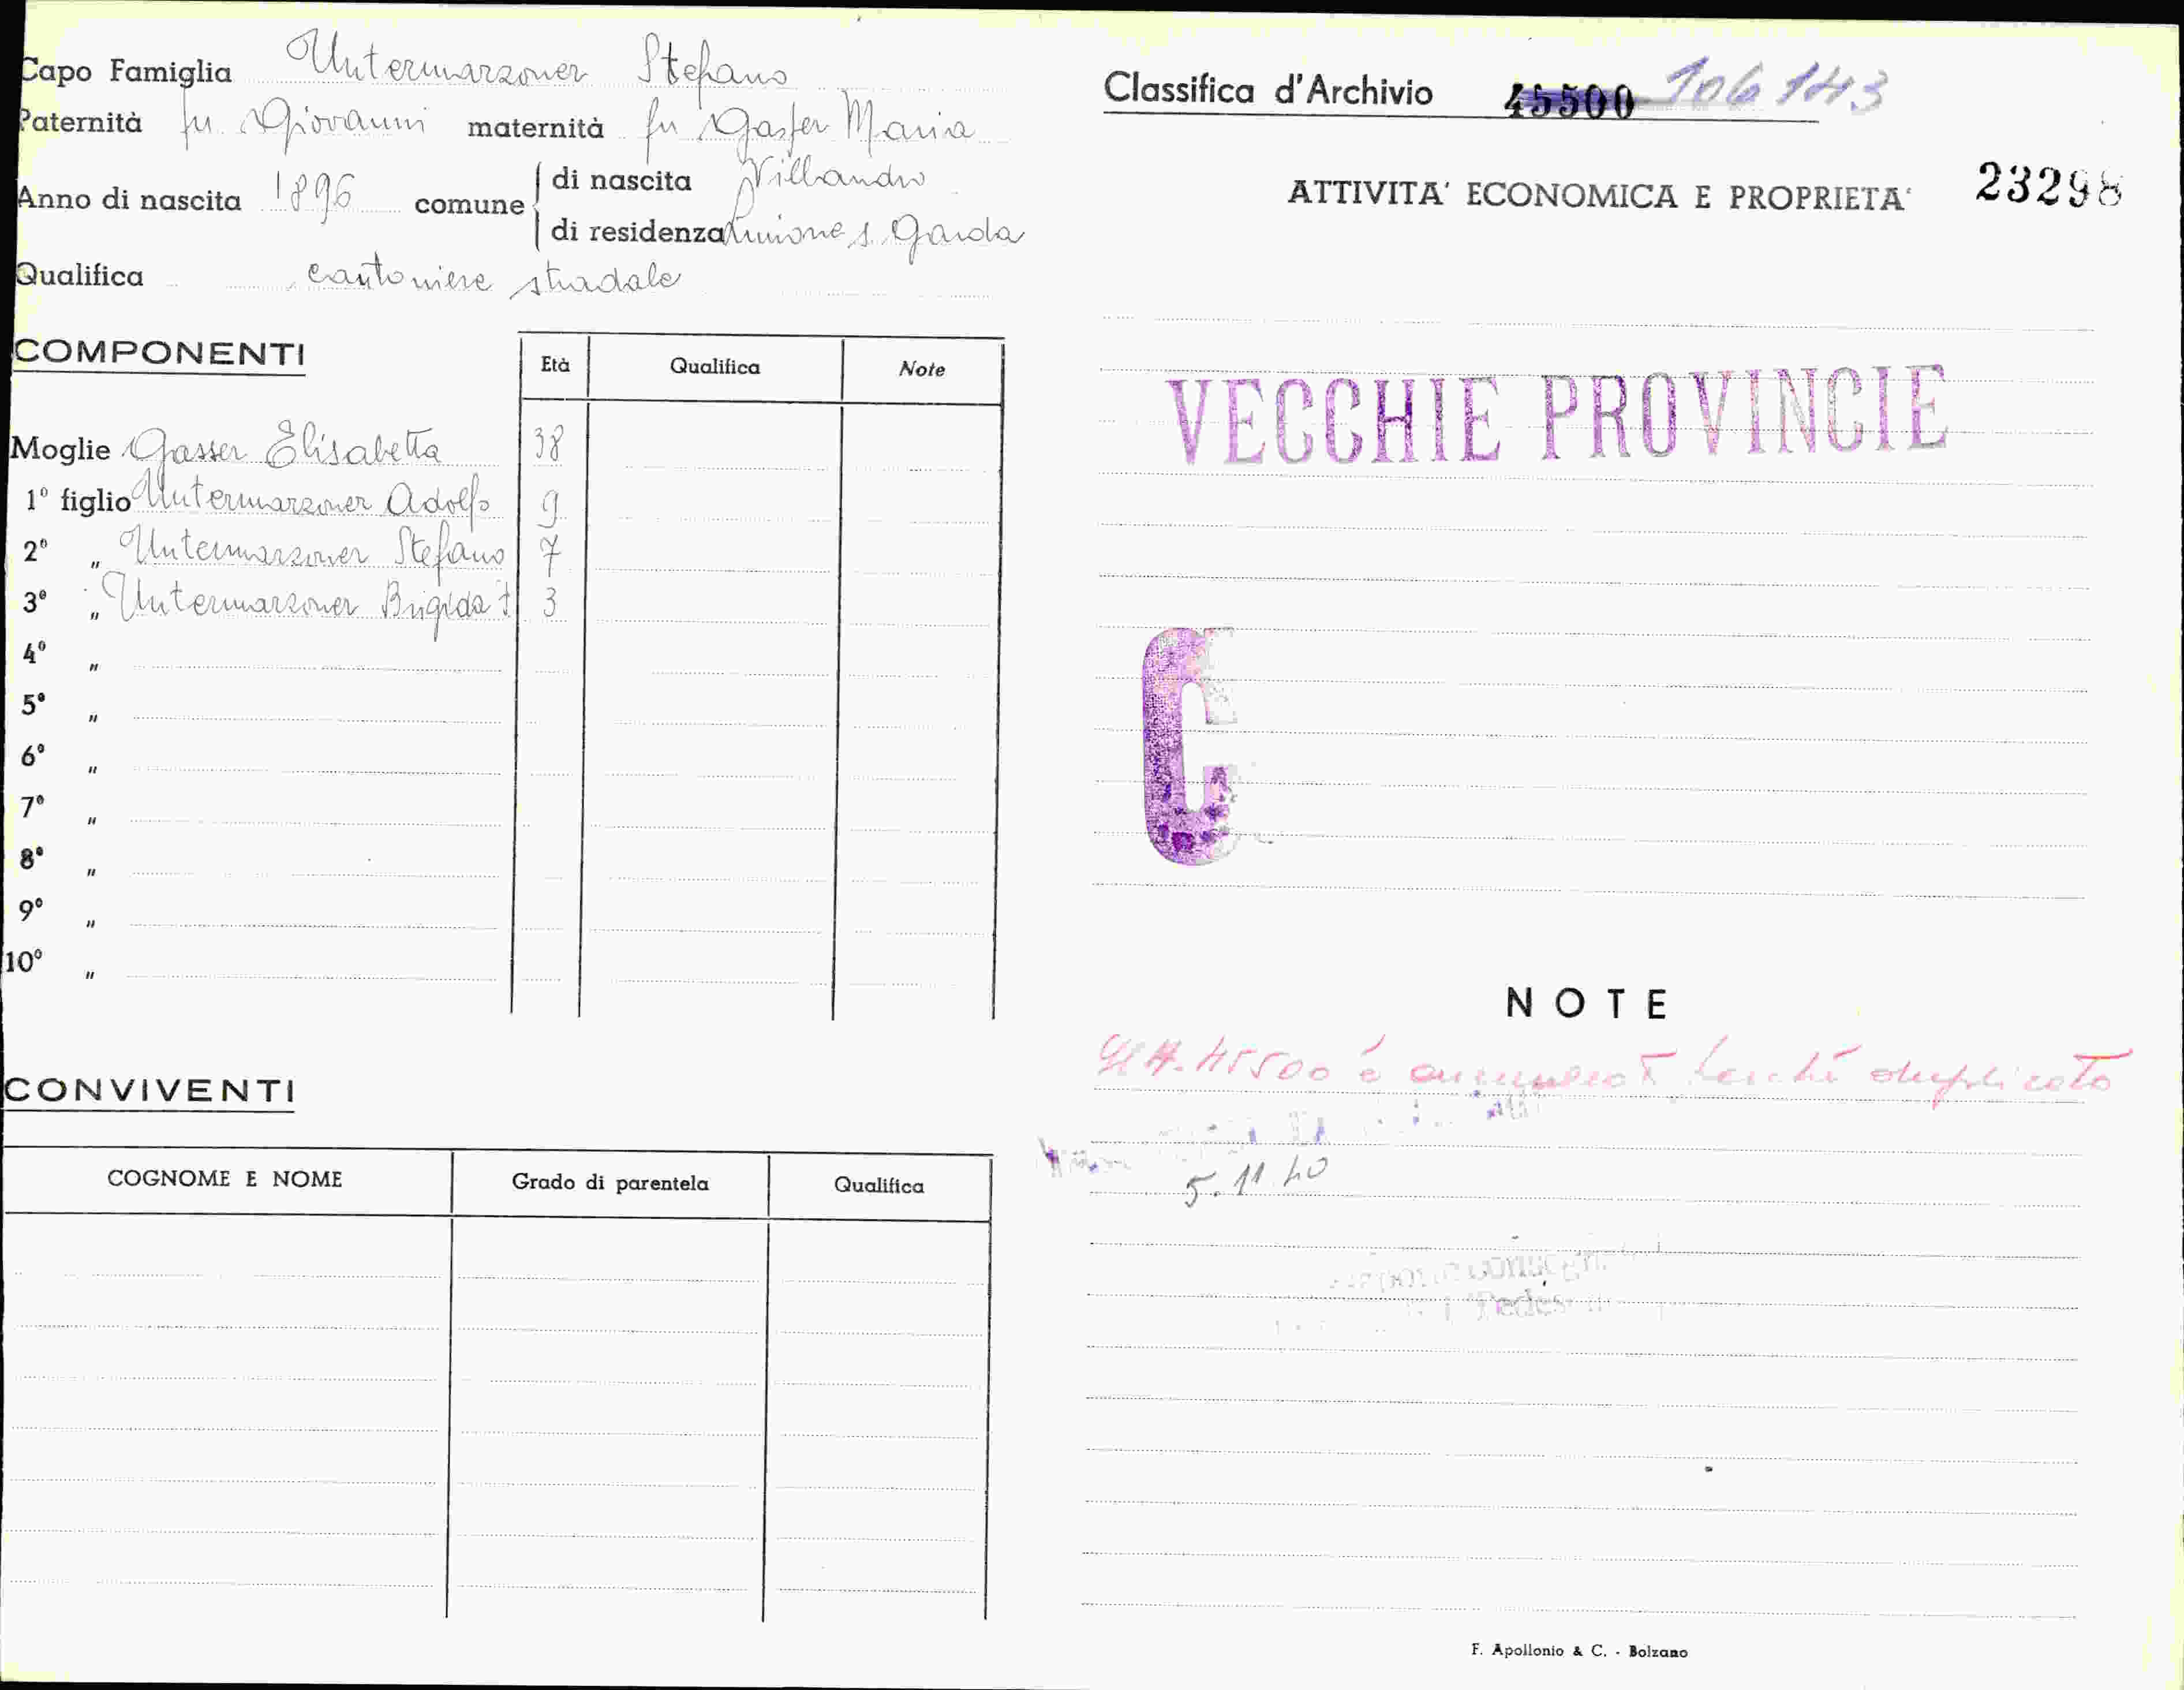 Capo Famiglia Untermarzoner Stefano
Paternità fu Giovanni maternità fu Gasser Maria
Anno di nascita 1896 comune di nascita Villandro
di residenza Limone s. Garda
Qualifica cantoniere stradale
COMPONENTI
Età Qualifica Note
Moglie Gasser Elisabetta 38
1º figlio Untermarzoner Adolfo 9
2º „ Untermarzoner Stefano 7
3º „ Untermarzoner Brigida 3
4º „
5º „
6º „
7º „
8º „
9º „
10º „
CONVIVENTI
COGNOME E NOME Grado di parentela Qualifica
Classifica d'Archivio 45500 106143
ATTIVITA' ECONOMICA E PROPRIETA' 23298
VECCHIE PROVINCIE
C
NOTE
45500 è duplicato
5.11.40
F. Apollonio & C. - Bolzano